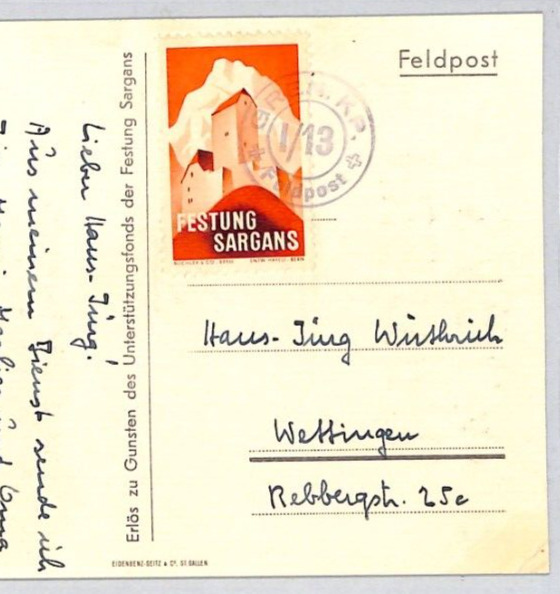 Feldpost
FÜS.KP.
I/13
Feldpost
FESTUNG
SARGANS
Hans-Jürg Wüthrich
Wettingen
Rebbergstr. 25c
Erlös zu Gunsten des Unterstützungsfonds der Festung Sargans
Lieber Hans-Jürg!
Aus meinem Dienst sende ich
EIDENBENZ-SEITZ & Cº. ST. GALLEN